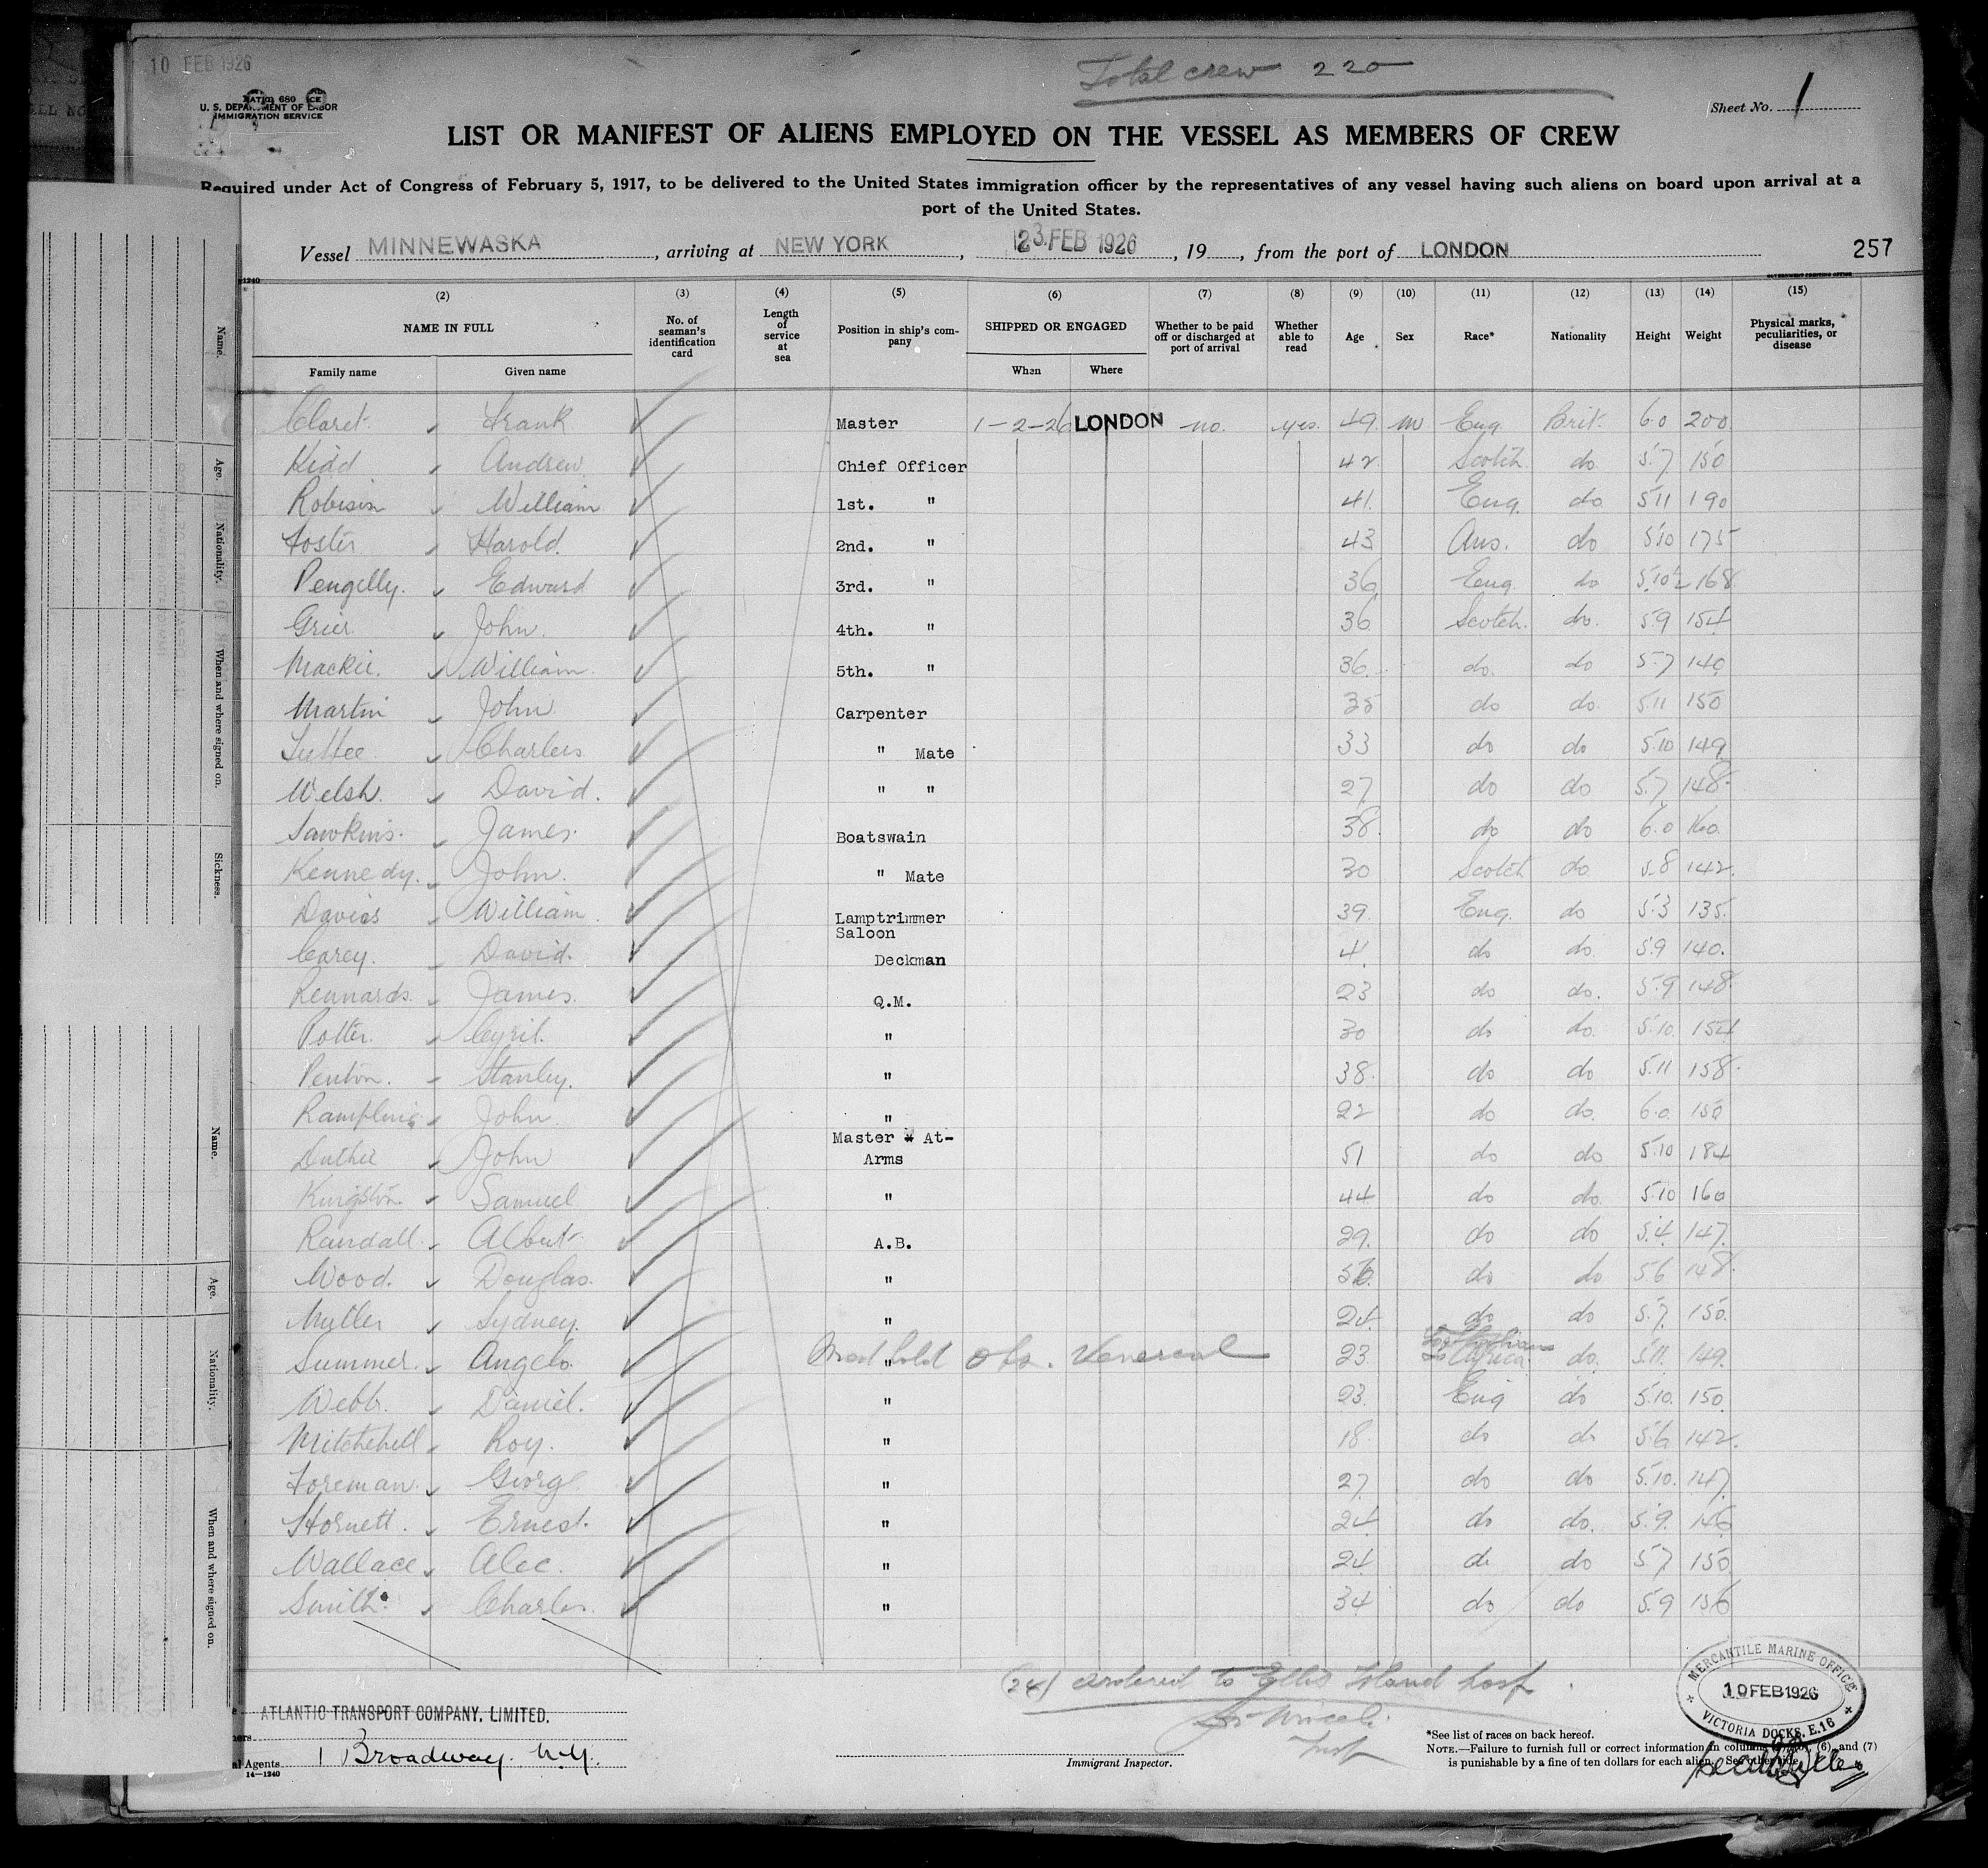 10 FEB 1926
Total crew 220
U. S. DEPARTMENT OF LABOR
IMMIGRATION SERVICE
Sheet No. 1
LIST OR MANIFEST OF ALIENS EMPLOYED ON THE VESSEL AS MEMBERS OF CREW
Required under Act of Congress of February 5, 1917, to be delivered to the United States immigration officer by the representatives of any vessel having such aliens on board upon arrival at a
port of the United States.
Vessel MINNEWASKA, arriving at NEW YORK, 23 FEB 1926, 19, from the port of LONDON 257
(2) (3) (4) (5) (6) (7) (8) (9) (10) (11) (12) (13) (14) (15)
NAME IN FULL No. of seaman's identification card Length of service at sea Position in ship's company SHIPPED OR ENGAGED Whether to be paid off or discharged at port of arrival Whether able to read Age Sex Race* Nationality Height Weight Physical marks, peculiarities, or disease
Family name Given name When Where
Claret Frank Master 1-2-26 LONDON no. yes. 49 m Eng. Brit. 6.0 200
Kidd Andrew Chief Officer 42 Scotch do 5.7 150
Robison William 1st. " 41 Eng. do 5.11 190
Foster Harold. 2nd. " 43 Aus. do 5.10 175
Pengelly. Edward 3rd. " 36 Eng. do 5.10½ 168
Grier John. 4th. " 36 Scotch. do. 5.9 154
Mackie. William. 5th. " 36. do. do 5.7 140
Martin John Carpenter 35 do do. 5.11 150
Charles " Mate 33 do do 5.10 149
Welsh. David. " " 27 do do 5.7 148.
Sawkins. James. Boatswain 38. do do 6.0 160
Kennedy. John. " Mate 30 Scotch do 5.8 142.
Davies William. Lamptrimmer 39. Eng. do 5.3 135.
Carey. David. Saloon Deckman 4. do do. 5.9 140.
Kennards. James. Q.M. 23 do do. 5.9 148.
Potter. Cyril. " 30 do do. 5.10. 154
Penton. Stanley. " 38. do do 5.11 158.
Rampling John " 22 do do. 6.0. 150
Duthie John Master At-Arms 51 do do 5.10 184
Kingston. Samuel " 44 do do. 5.10 160
Randall. Albert A.B. 29. do do 5.4. 147.
Wood. Douglas. " do do 5.6 148.
Sydney. " 24. do do 5.7. 150.
Summer. Angelo. " Med hold obs. Venereal 23 Africa. do. 5.11. 149.
Webb. Daniel. " 23. Eng do 5.10. 150.
Mitchehell Roy. " 18 do do 5.6 142.
Foreman. George " 27 do do 5.10. 147.
Hornett. Ernest. " 24 do do. 5.9. 146
Wallace Alec. " 24 do do 5.7 150
Smith. Charles. " 34 do do 5.9 156
(24) ordered to Ellis Island hosp.
Insp
ATLANTIC TRANSPORT COMPANY, LIMITED.
Agents 1 Broadway. N.Y.
14—1240
Immigrant Inspector.
*See list of races on back hereof.
NOTE.—Failure to furnish full or correct information in columns (6), and (7)
is punishable by a fine of ten dollars for each alien. See other side.
MERCANTILE MARINE OFFICE
10 FEB 1926
VICTORIA DOCKS. E.16
Name.
Age.
Nationality.
When and where signed on.
Sickness.
Name.
Age.
Nationality.
When and where signed on.